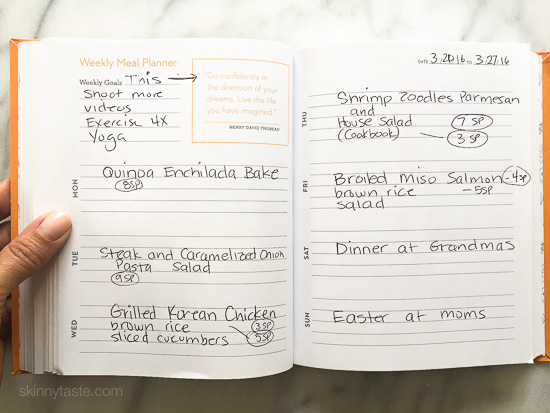 Weekly Meal Planner
Weekly Goals This →
Shoot more
videos
Exercise 4X
Yoga
"Go confidently in
the direction of your
dreams. Live the life
you have imagined."
HENRY DAVID THOREAU
MON
Quinoa Enchilada Bake
8SP
TUE
Steak and Caramelized Onion
Pasta Salad
9SP
WED
Grilled Korean Chicken
brown rice 3SP
sliced cucumbers 5SP
DATE 3.20.16 TO 3.27.16
THU
Shrimp Zoodles Parmesan
and
House Salad 7 SP
(Cookbook) 3 SP
FRI
Broiled Miso Salmon - 4SP
brown rice - 5SP
salad
SAT
Dinner at Grandmas
SUN
Easter at moms
skinnytaste.com